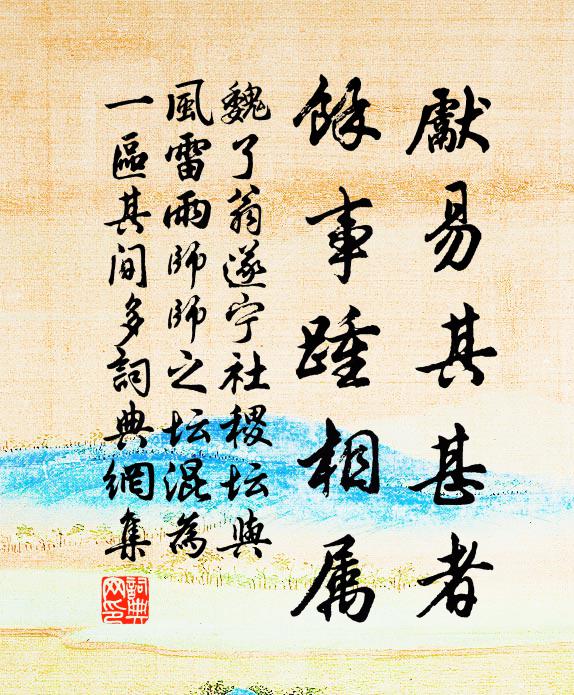 獻易其甚者
餘事踵相属
魏了翁遂宁社稷坛與
風雷雨師師之坛混為
一區其间多詞典網集
詞典